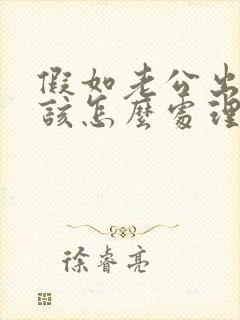 假如老公出
該怎麼處理
徐睿亮